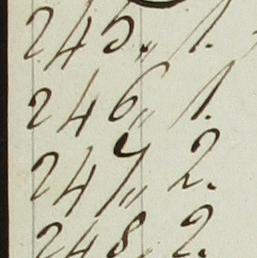 245„ 1.
246„ 1.
247„ 2.
248„ 2.